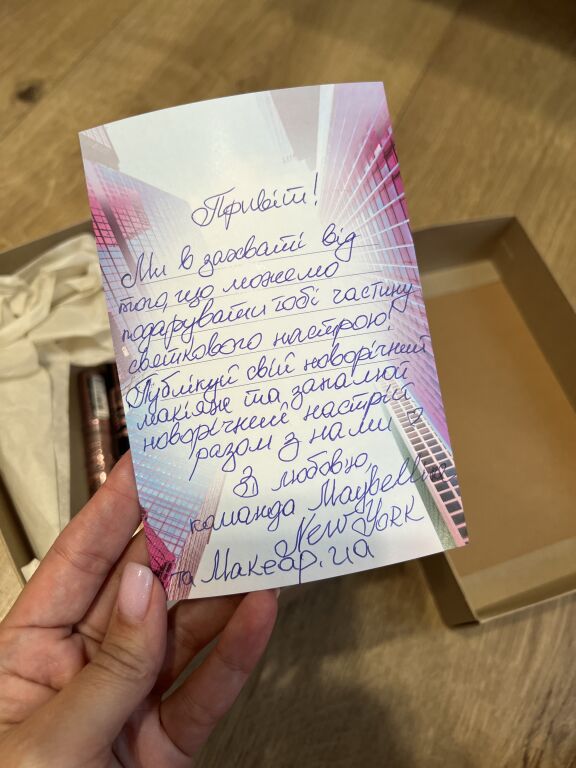 Привіт!
Ми в захваті від
того, що можемо
подарувати тобі частину
святкового настрою!
Публікуй свій новорічний
макіяж та запалюй
новорічний настрій
разом з нами ♡
З любов'ю,
команда Maybelline
New York
та Макеар.иа